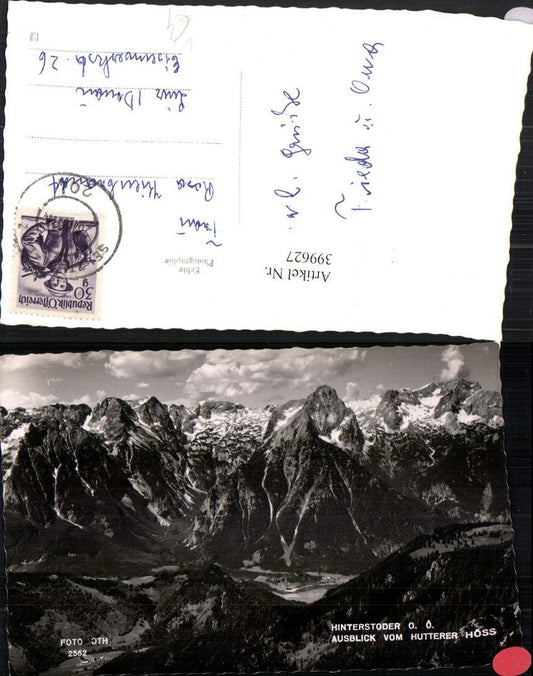 Frau
Rosa
Linz / Donau
26
lb. Grüße
Frieda u.
Echte
Photographie
Artikel Nr.
399627
64
30
g
Republik Österreich
FOTO OTH
2562
HINTERSTODER O. Ö.
AUSBLICK VOM HUTTERER HÖSS